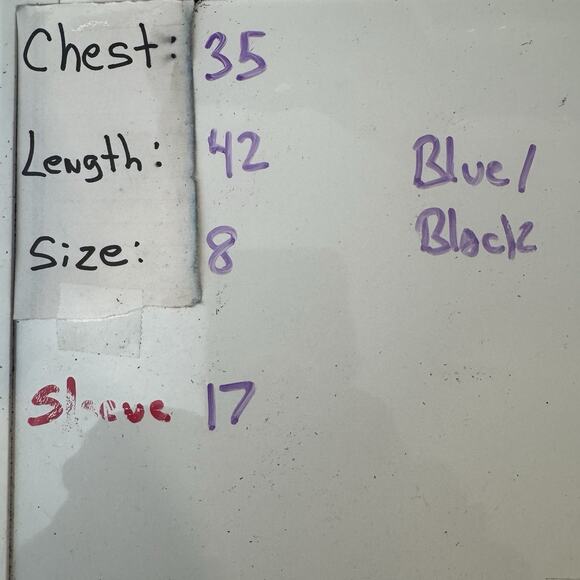 Chest: 35
Length: 42
Size: 8
Blue/
Black
Sleeve 17